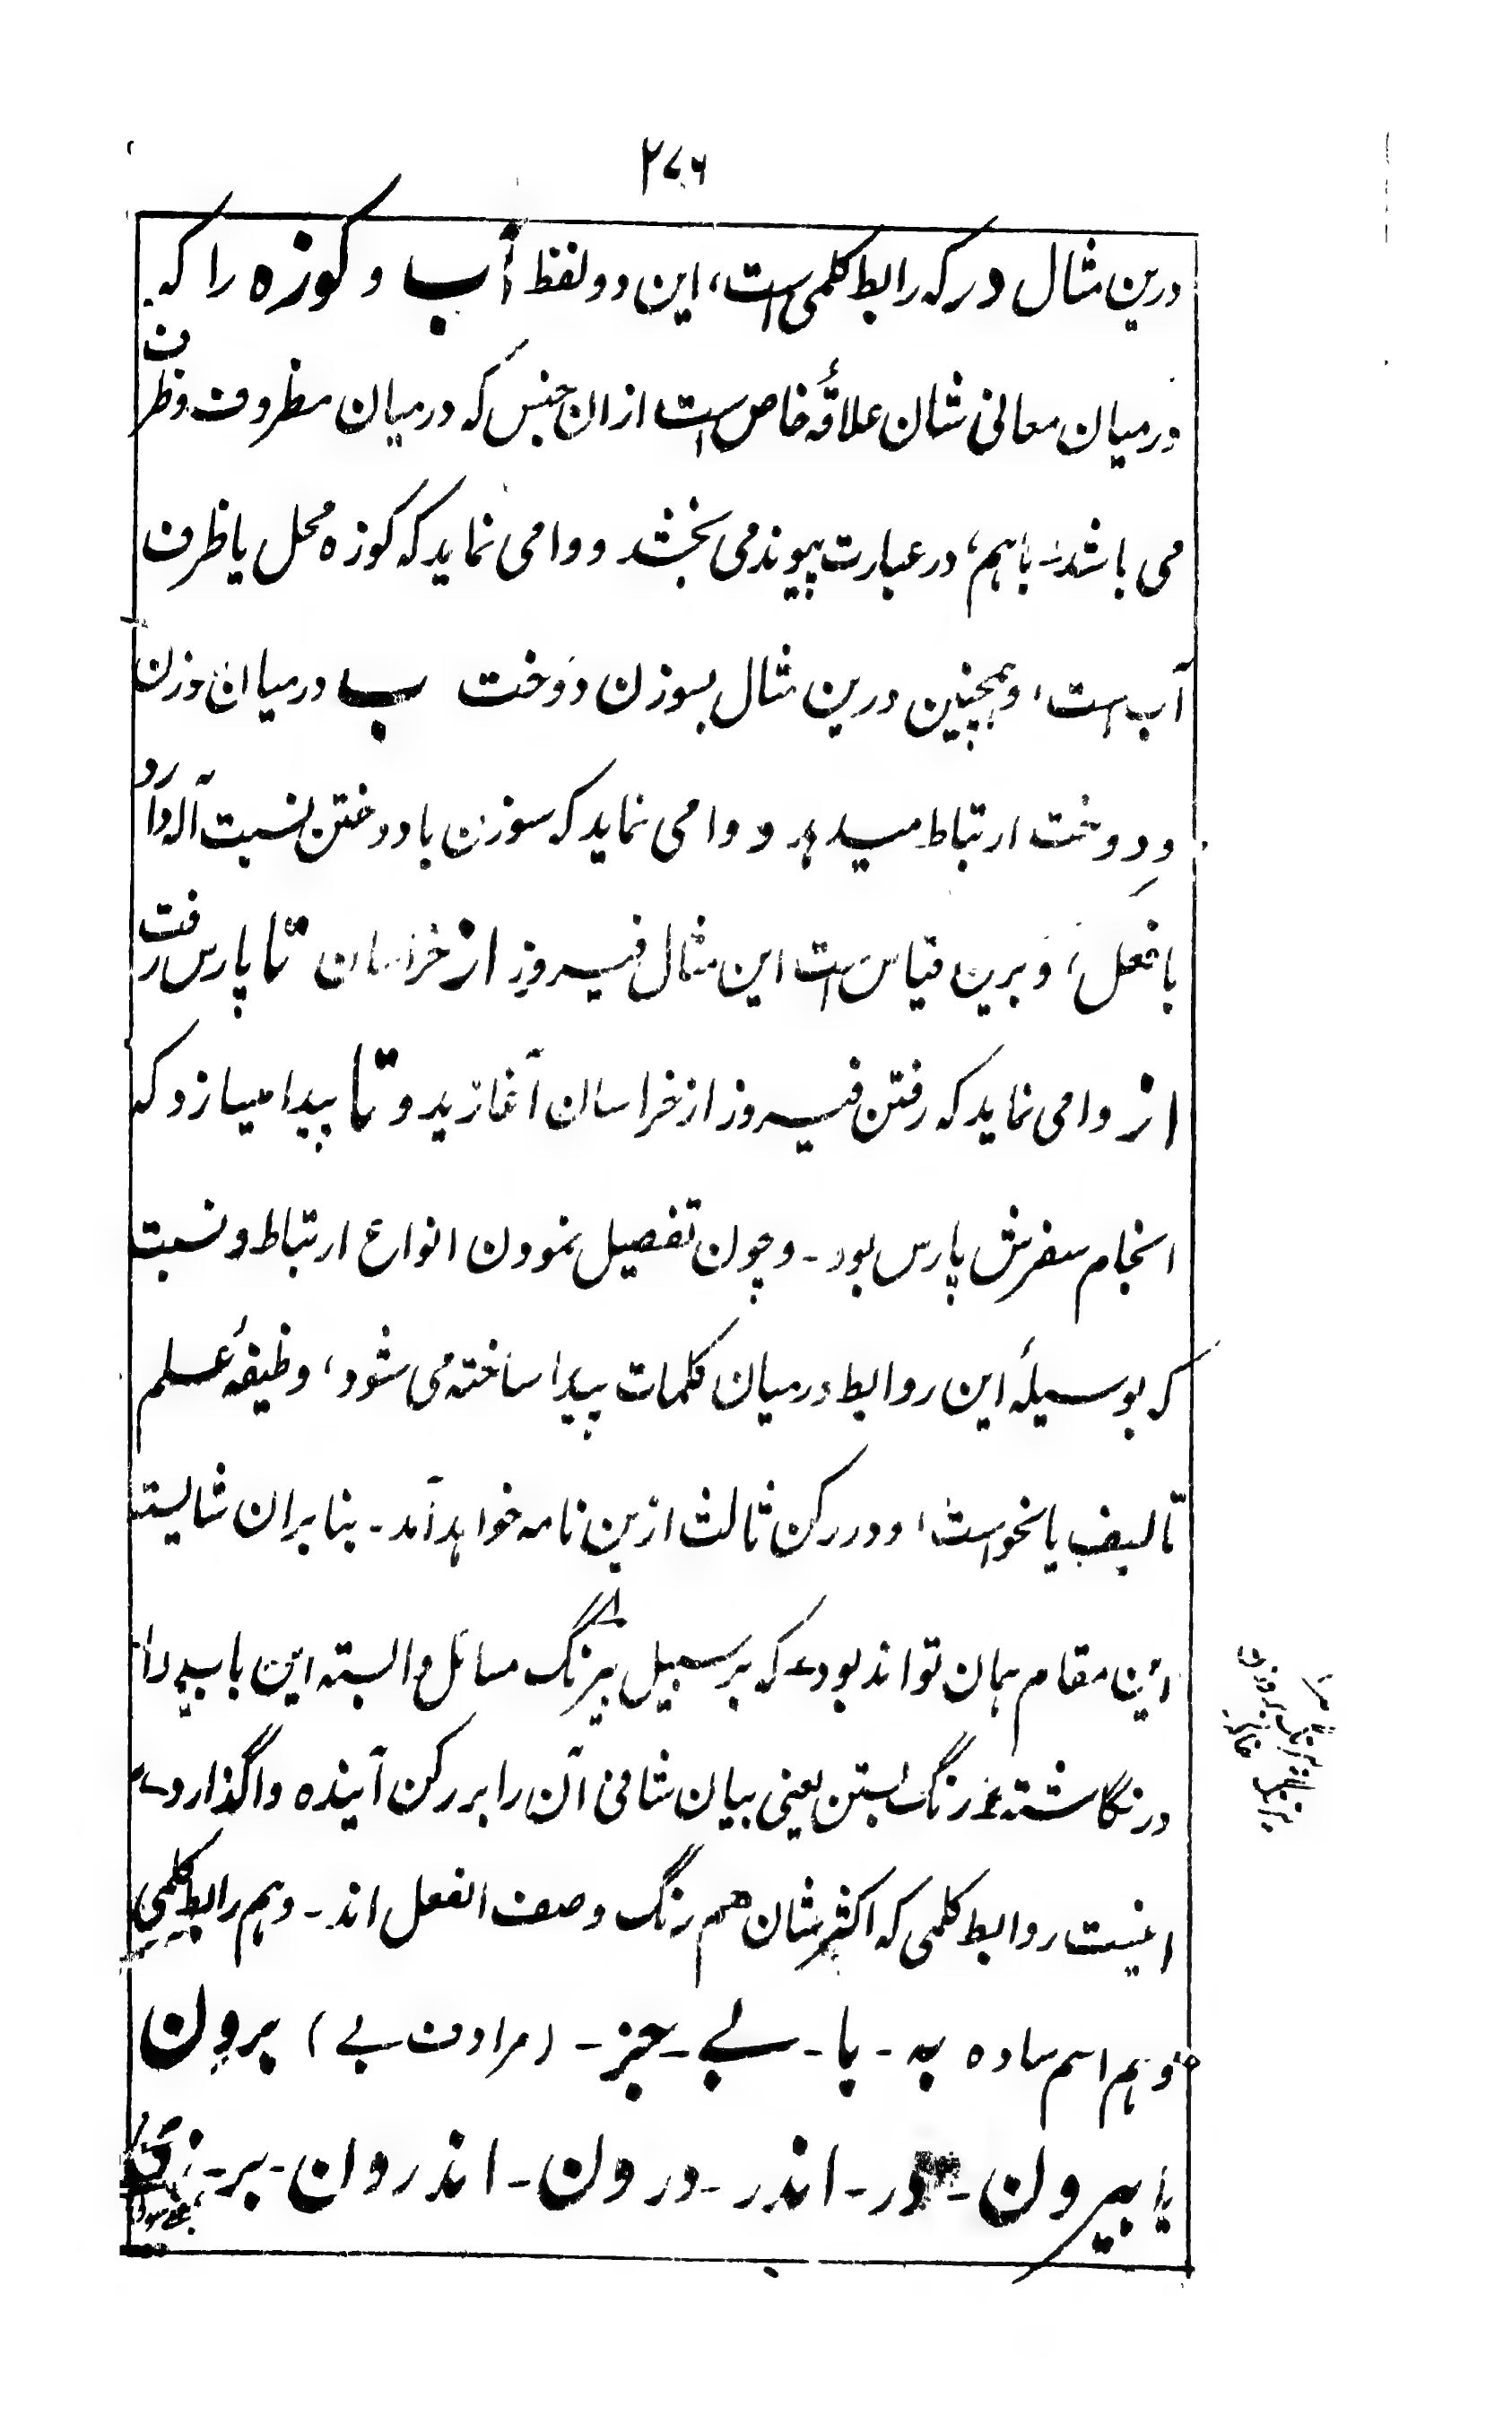 ۲۷۶
درین مثال در که رابط کلمی است، این دو لفظ آب و کوزه را که
درمیان معانی شان علاقهٔ خاص است ازان جنس که درمیان مظروف و ظرف
می باشد۔ باہم، در عبارت پیوند می بخشد و وامی نماید که کوزه محل یا ظرف
آب است، و ہمچنین درین مثال بسوزن دوخت ب درمیان سوزن
و دوخت ارتباط میدہد و وامی نماید که سوزن با دوختن نسبت آله دارد
با فعل، و برین قیاس است این مثال فیروز از خراسان تا پارس رفت
از وامی نماید که رفتن فیروز از خراسان آغازید و تا پیدا میسازد که
انجام سفرش پارس بود۔ و چون تفصیل نمودن انواع ارتباط و نسبت
که بوسیلهٔ این روابط درمیان کلمات پیدا ساخته می شود، وظیفهٔ علم
تالیف یا نحو است، و در رکن ثالث ازین نامه خواہد آمد۔ بنابران شایسته
این مقام ہمان تواند بود که بر سبیل بیرنگ مسائل وابسته این باب را
در نگاشته رنگ بستن یعنی بیان شافی آن را بر رکن آینده واگذارد
اینست روابط کلمی که اکثر شان هم رنگ وصف الفعل اند۔ و ہم رابط کلمی
و ہم اسم ساده به ۔ با ۔ بے ۔ جز ۔ (مرادف بے) برون
یا بیرون ۔ در ۔ اندر ۔ درون ۔ اندرون ۔ بر ۔